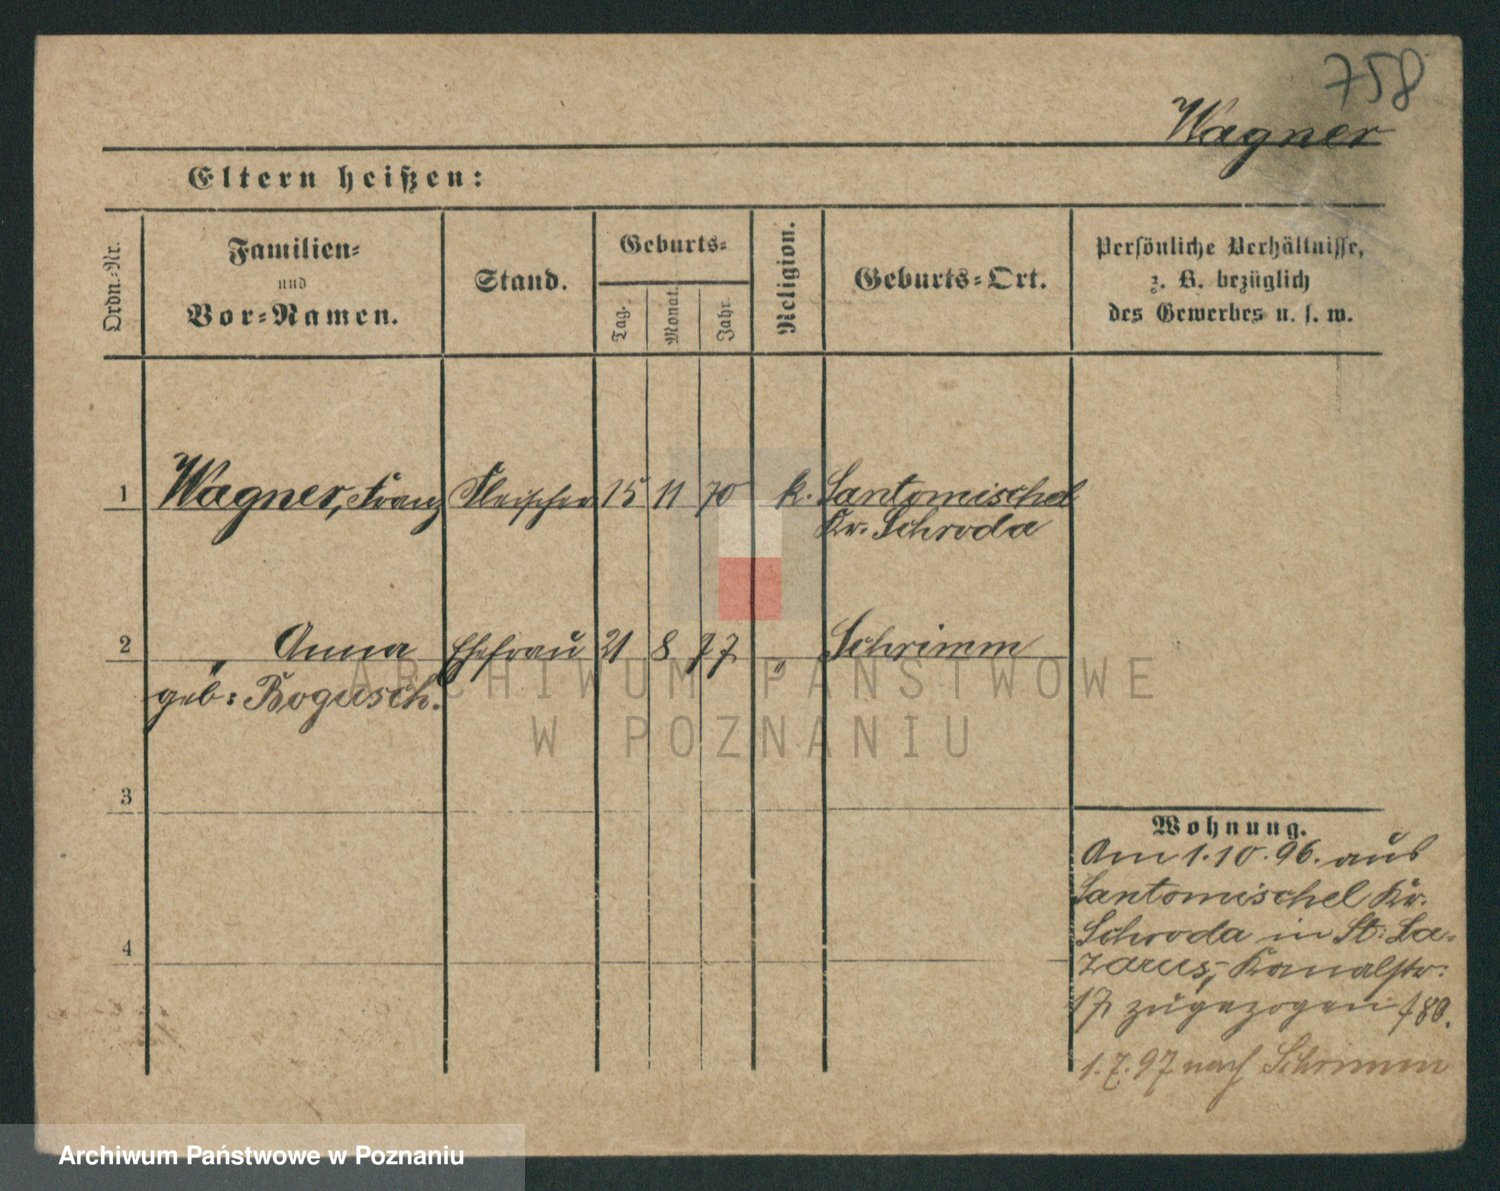 758
Wagner
Eltern heißen:
Ordn.-Nr.
Familien-
und
Vor-Namen.
Stand.
Geburts-
Tag.
Monat.
Jahr.
Religion.
Geburts-Ort.
Persönliche Verhältnisse,
z. B. bezüglich
des Gewerbes u. s. w.
1 Wagner, Franz Fleischer 15 11 70 k. Santomischel
Kr. Schroda
2 " Anna Ehefrau 21 8 77 " Schrimm
geb: Bogusch.
3
4
Wohnung.
Am 1.10.96. aus
Santomischel Kr.
Schroda in St. La-
zarus, Kanalstr:
17 zugezogen 180.
1.7.97 nach Schrimm
ARCHIWUM PAŃSTWOWE
W POZNANIU
Archiwum Państwowe w Poznaniu